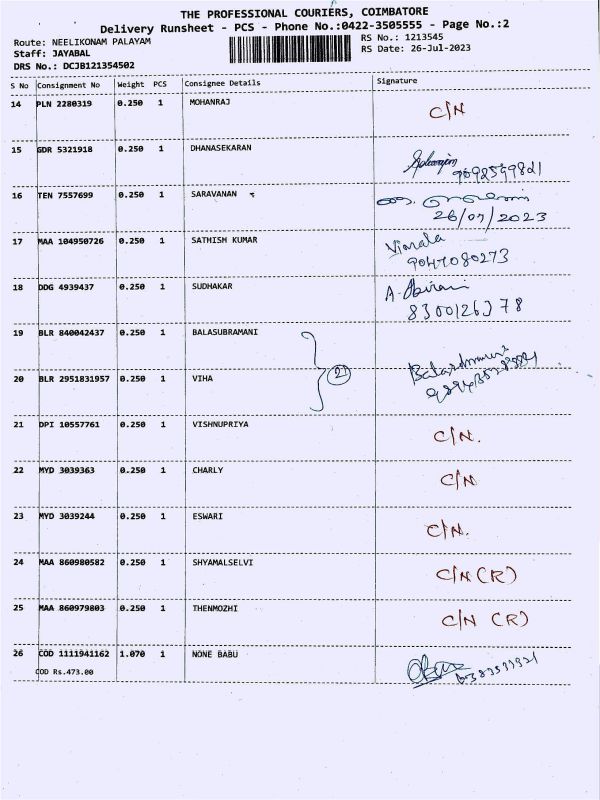 THE PROFESSIONAL COURIERS, COIMBATORE
Delivery Runsheet - PCS - Phone No.:0422-3505555 - Page No.:2
Route: NEELIKONAM PALAYAM RS No.: 1213545
Staff: JAYABAL RS Date: 26-Jul-2023
DRS No.: DCJB121354502
S No Consignment No Weight PCS Consignee Details Signature
14 PLN 2280319 0.250 1 MOHANRAJ C/N
15 GDR 5321918 0.250 1 DHANASEKARAN
16 TEN 7557699 0.250 1 SARAVANAN
26/07/2023
17 MAA 104950726 0.250 1 SATHISH KUMAR Vimala
9047080273
18 DDG 4939437 0.250 1 SUDHAKAR A. Abirami
8300126378
19 BLR 840042437 0.250 1 BALASUBRAMANI
20 BLR 2951831957 0.250 1 VIHA 2
21 DPI 10557761 0.250 1 VISHNUPRIYA C/N.
22 MYD 3039363 0.250 1 CHARLY C/N
23 MYD 3039244 0.250 1 ESWARI C/N.
24 MAA 860980582 0.250 1 SHYAMALSELVI C/N (R)
25 MAA 860979803 0.250 1 THENMOZHI C/N (R)
26 COD 1111941162 1.070 1 NONE BABU
COD Rs.473.00